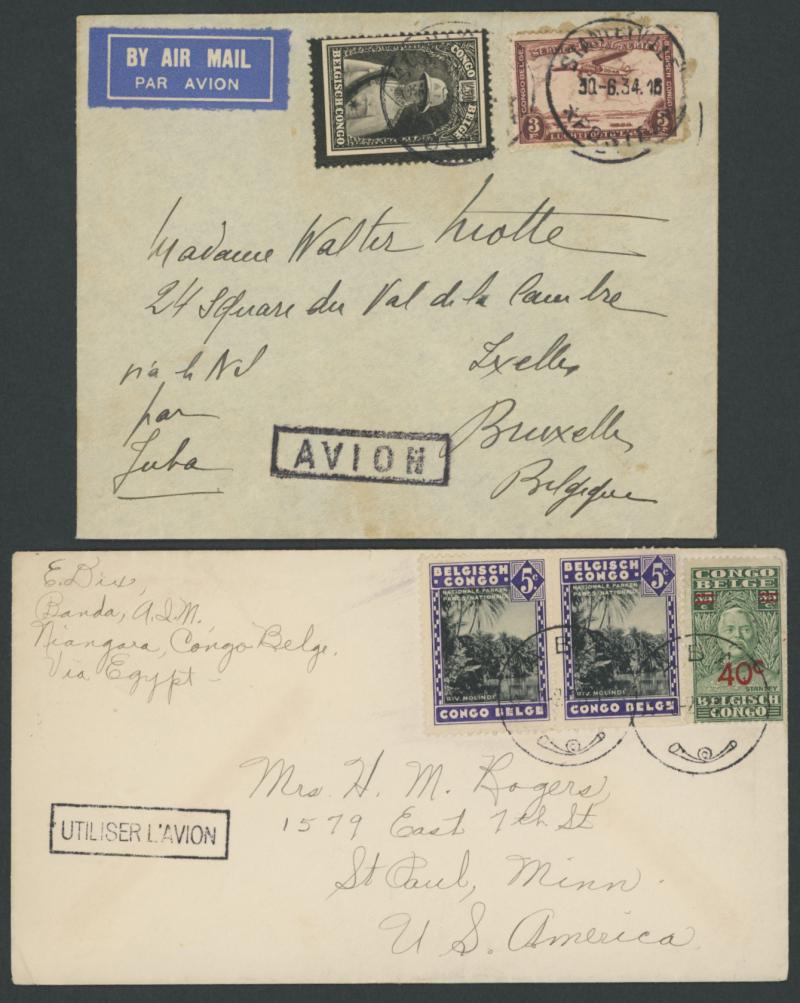 BY AIR MAIL
PAR AVION
CONGO BELGE
BELGISCH CONGO
CONGO BELGE
BELGISCH CONGO
3 Fs
30-6.34.16
Madame Walter Motte
24 Square du Val de la Cambre
via le Nil
Ixelles
par
Bruxelles
Juba
AVION
Belgique
E. Dix,
Banda, A.I.M.
Niangara, Congo Belge.
Via Egypt-
BELGISCH CONGO 5c
NATIONALE PARKEN
PARCS NATIONAUX
RIV. MOLINDI
CONGO BELGE
BELGISCH CONGO 5c
NATIONALE PARKEN
PARCS NATIONAUX
RIV. MOLINDI
CONGO BELGE
CONGO BELGE
40c
STANLEY
BELGISCH CONGO
B
B
Mrs. H. M. Rogers,
1579 East 7th St
St Paul, Minn.
U. S. America.
UTILISER L'AVION